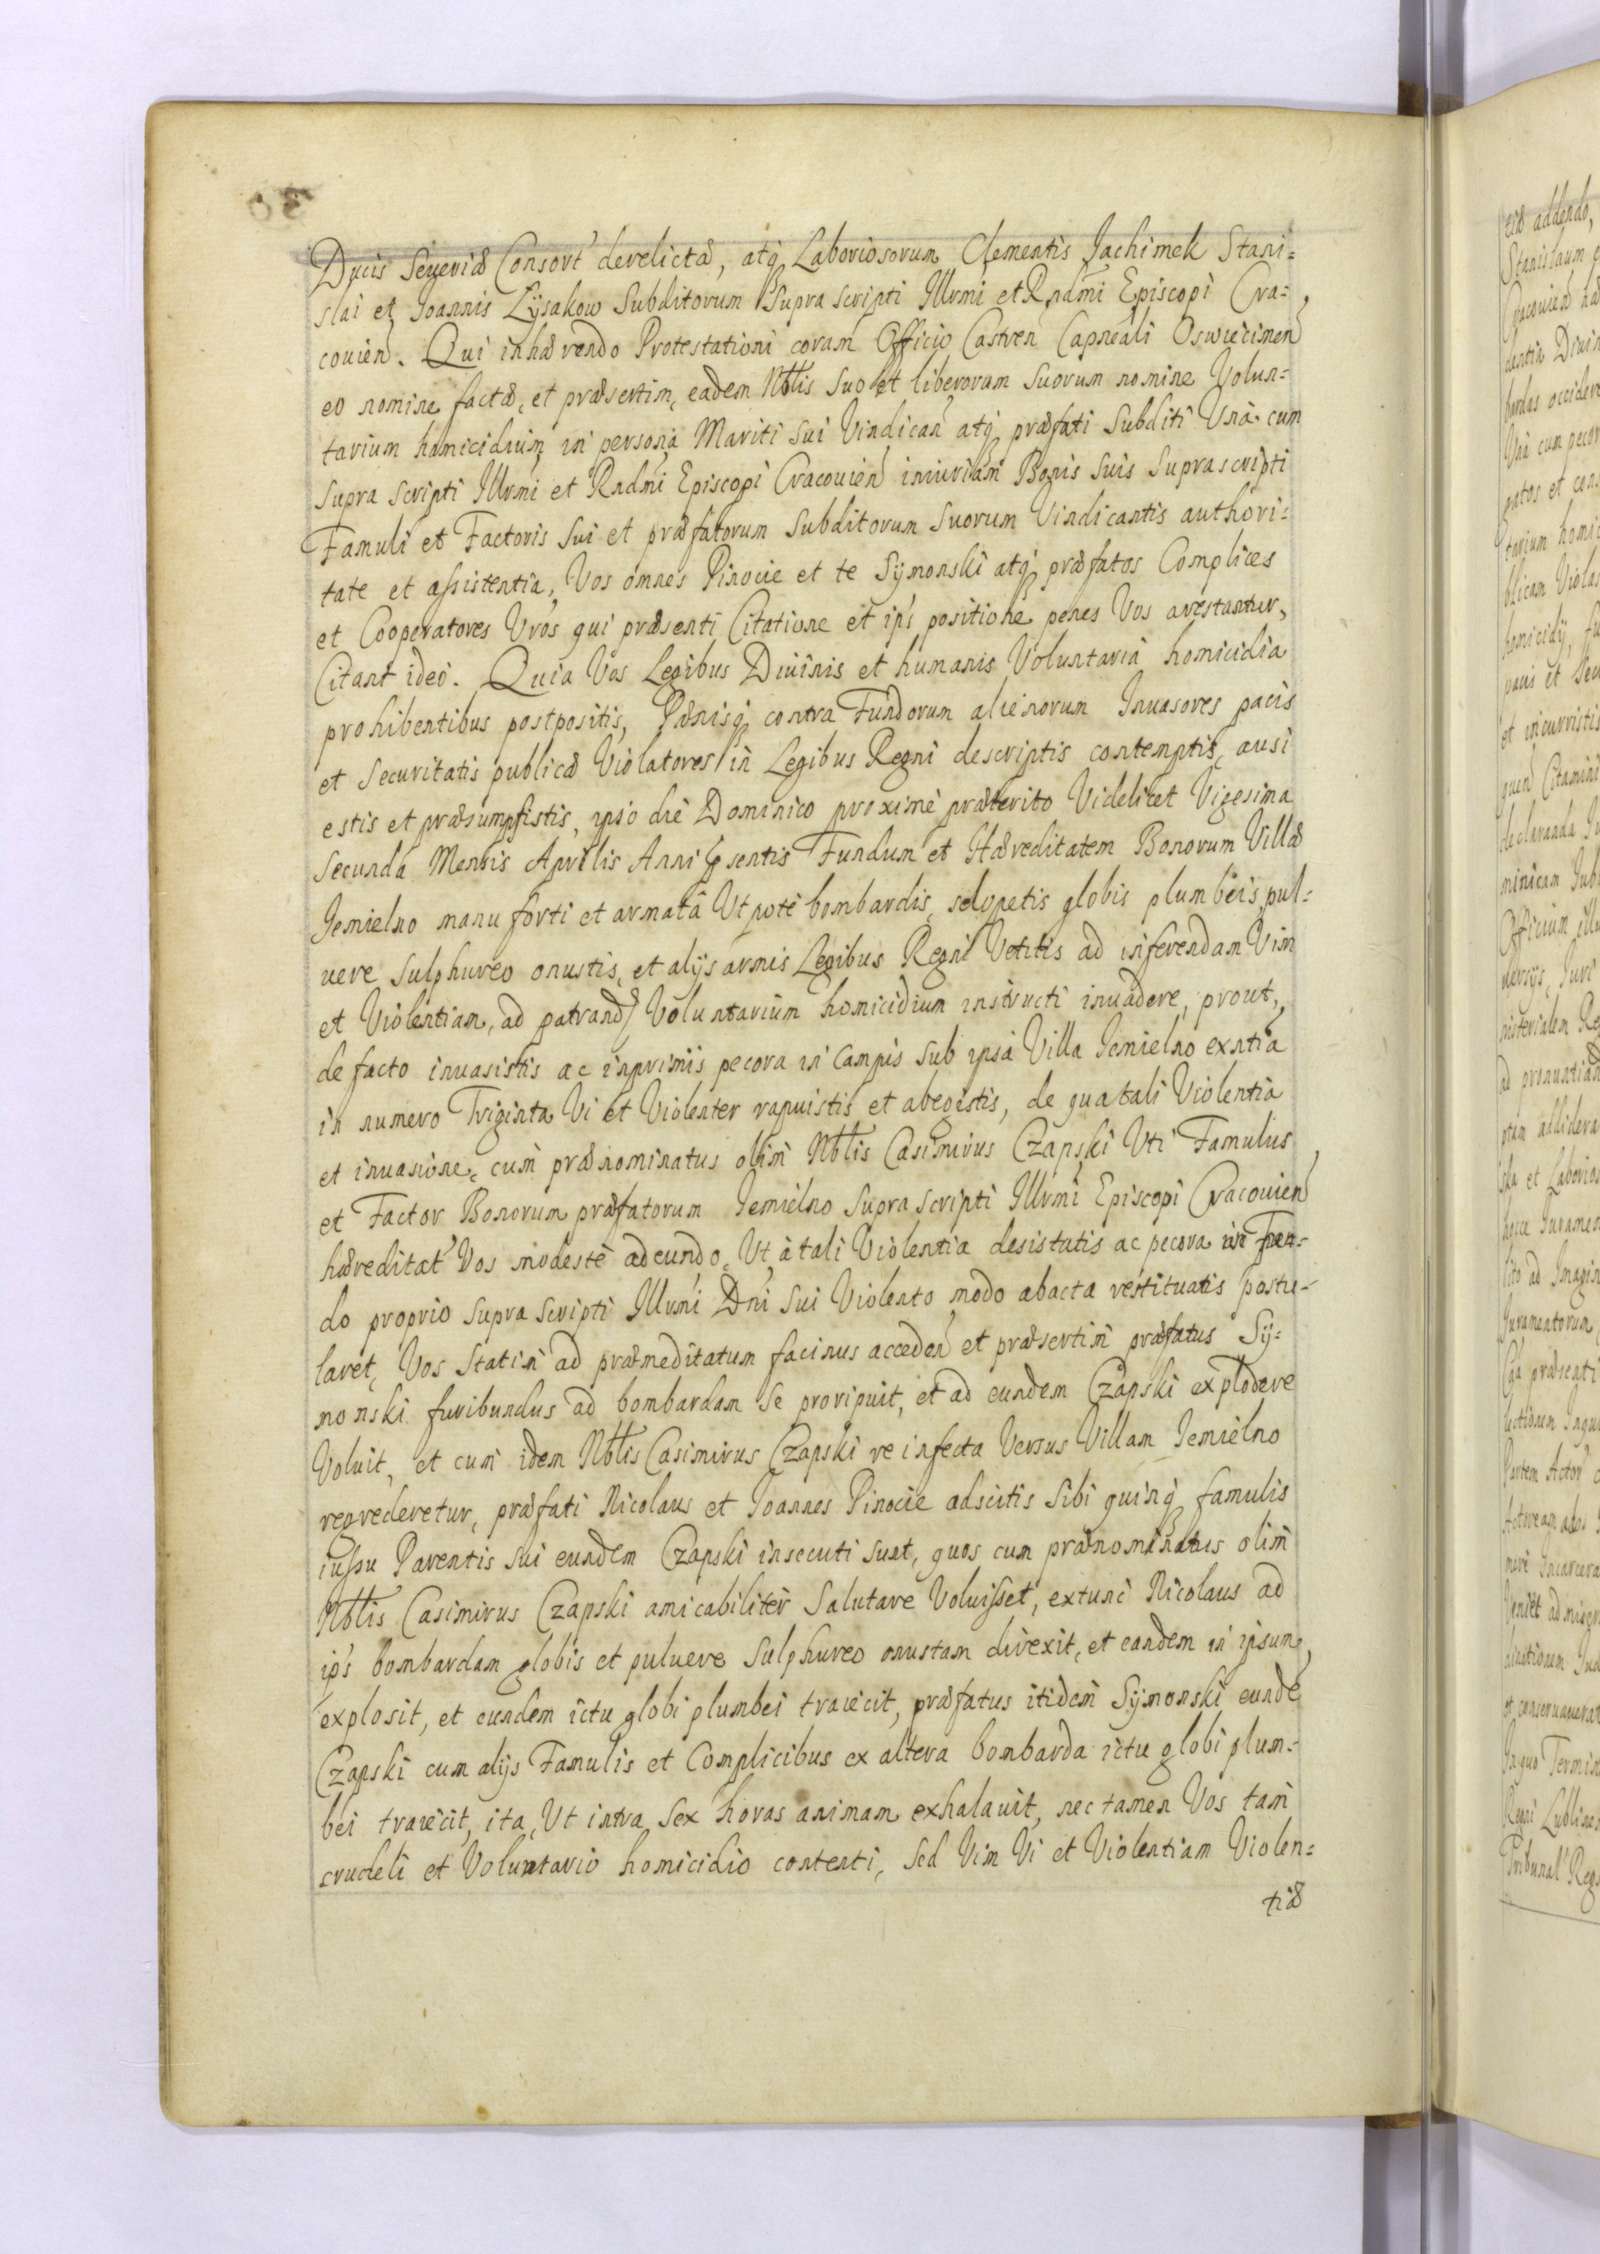 Ducis Seueriæ Consort derelictæ, atq Laboriosorum Clementis Jachimek Stani=
slai et Joannis Łysakow Subditorum Supra scripti Illrmi et Rndmi Episcopi Cra=
couien. Qui inhærendo Protestationi coram Officio Castren Capneali Oswiecimen
eo nomine factæ, et præsertim, eadem Nblis suo et liberorum suorum nomine Volun=
tarium homicidium in persona Mariti sui Vindican atq præfati Subditi Una cum
supra scripti Illrmi et Rndmi Episcopi Cracouien iniuriam Bonis suis suprascripti
Famuli et Factoris sui et præfatorum Subditorum suorum Vindicantis authori=
tate et assistentia, Vos omnes Pinocie et te Symonski atq præfatos Complices
et Cooperatores Vros qui præsenti Citatione et ips positione penes Vos arestantur,
Citant ideo. Quia Vos Legibus Diuinis et humanis Voluntaria homicidia
prohibentibus postpositis, Pænisq contra Fundorum alienorum Inuasores pacis
et securitatis publicæ Violatores in Legibus Regni descriptis contemptis, ausi
estis et præsumpsistis, ipso die Dominico proxime præterito Videlicet Vigesima
secunda Mensis Aprilis Anni psentis Fundum et Hæreditatem Bonorum Villæ
Jemielno manu forti et armata Utpote bombardis, sclopetis globis plumbeis, pul=
uere sulphureo onustis, et alijs armis Legibus Regni Vetitis ad inferendam Vim
et Violentiam, ad patrand Voluntarium homicidium instructi inuadere, prout,
de facto inuasistis ac inprimis pecora in Campis sub ipsa Villa Jemielno exntia
in numero Triginta Vi et Violenter rapuistis et abegistis, de qua tali Violentia
et inuasione, cum prænominatus olim Nblis Casimirus Czapski Uti Famulus
et Factor Bonorum præfatorum Jemielno supra scripti Illrmi Episcopi Cracouien
hæreditat Vos modeste adeundo, Ut a tali Violentia desistatis ac pecora in Fun=
do proprio supra scripti Illrmi Dni sui Violento modo abacta restituatis postu=
laret, Vos statim ad præmeditatum facinus acceden et præsertim præfatus Sy=
monski furibundus ad bombardam se proripuit, et ad eundem Czapski explodere
Voluit, et cum idem Nblis Casimirus Czapski re infecta Versus Villam Jemielno
regrederetur, præfati Nicolaus et Joannes Pinocie adscitis sibi quinq famulis
iussu Parentis sui eundem Czapski insecuti sunt, quos cum prænominatus olim
Nblis Casimirus Czapski amicabiliter Salutare Voluisset, extunc Nicolaus ad
ips bombardam globis et puluere sulphureo onustam direxit, et eandem in ipsum
explosit, et eundem ictu globi plumbei traiecit, præfatus itidem Symonski eunde
Czapski cum alijs Famulis et Complicibus ex altera bombarda ictu globi plum=
bei traiecit, ita, Ut intra sex horas animam exhalauit, nec tamen Vos tam
crudeli et Voluntario homicidio contenti, sed Vim Vi et Violentiam Violen=
tiæ